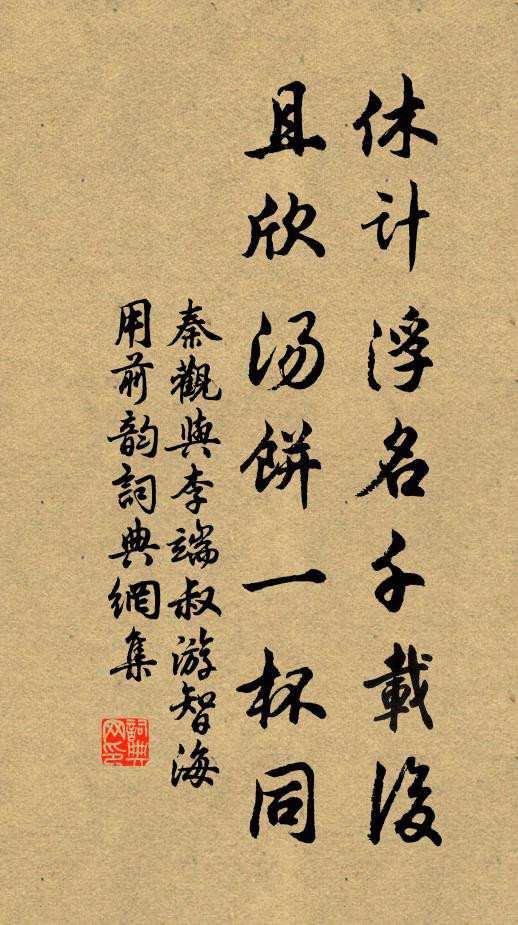 休计浮名千載後
且欣汤餅一杯同
秦觀與李端叔游智海
用前韵詞典網集
詞典網印